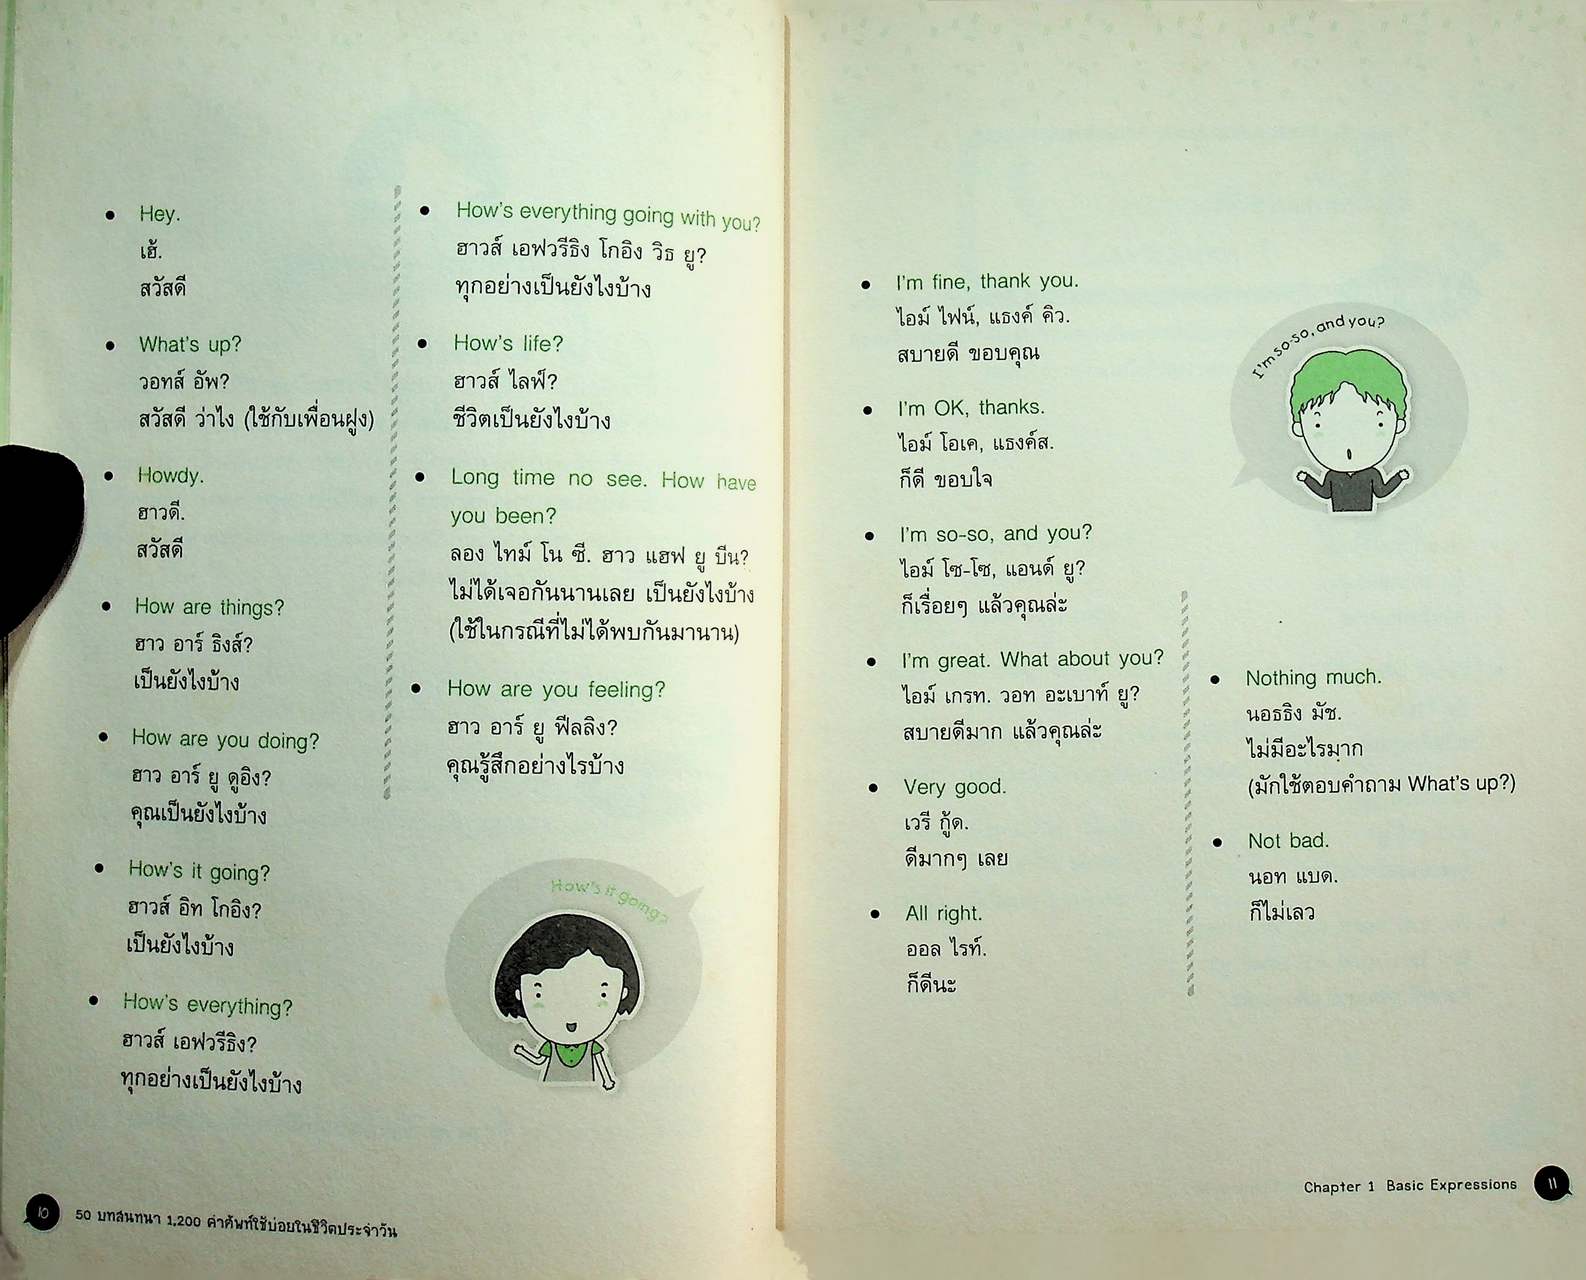 Hey.
เฮ้.
สวัสดี
What's up?
วอทส์ อัพ?
สวัสดี ว่าไง (ใช้กับเพื่อนฝูง)
Howdy.
ฮาวดี.
สวัสดี
How are things?
ฮาว อาร์ ธิงส์?
เป็นยังไงบ้าง
How are you doing?
ฮาว อาร์ ยู ดูอิง?
คุณเป็นยังไงบ้าง
How's it going?
ฮาวส์ อิท โกอิง?
เป็นยังไงบ้าง
How's everything?
ฮาวส์ เอฟวรีธิง?
ทุกอย่างเป็นยังไงบ้าง
How's everything going with you?
ฮาวส์ เอฟวรีธิง โกอิง วิธ ยู?
ทุกอย่างเป็นยังไงบ้าง
How's life?
ฮาวส์ ไลฟ์?
ชีวิตเป็นยังไงบ้าง
Long time no see. How have
you been?
ลอง ไทม์ โน ซี. ฮาว แฮฟ ยู บีน?
ไม่ได้เจอกันนานเลย เป็นยังไงบ้าง
(ใช้ในกรณีที่ไม่ได้พบกันมานาน)
How are you feeling?
ฮาว อาร์ ยู ฟีลลิง?
คุณรู้สึกอย่างไรบ้าง
How's it going?
10 50 บทสนทนา 1,200 คำศัพท์ใช้บ่อยในชีวิตประจำวัน
I'm fine, thank you.
ไอม์ ไฟน์, แธงค์ คิว.
สบายดี ขอบคุณ
I'm OK, thanks.
ไอม์ โอเค, แธงค์ส.
ก็ดี ขอบใจ
I'm so-so, and you?
ไอม์ โซ-โซ, แอนด์ ยู?
ก็เรื่อยๆ แล้วคุณล่ะ
I'm great. What about you?
ไอม์ เกรท. วอท อะเบาท์ ยู?
สบายดีมาก แล้วคุณล่ะ
Very good.
เวรี กู้ด.
ดีมากๆ เลย
All right.
ออล ไรท์.
ก็ดีนะ
I'm so-so, and you?
Nothing much.
นอธธิง มัช.
ไม่มีอะไรมาก
(มักใช้ตอบคำถาม What's up?)
Not bad.
นอท แบด.
ก็ไม่เลว
Chapter 1 Basic Expressions 11